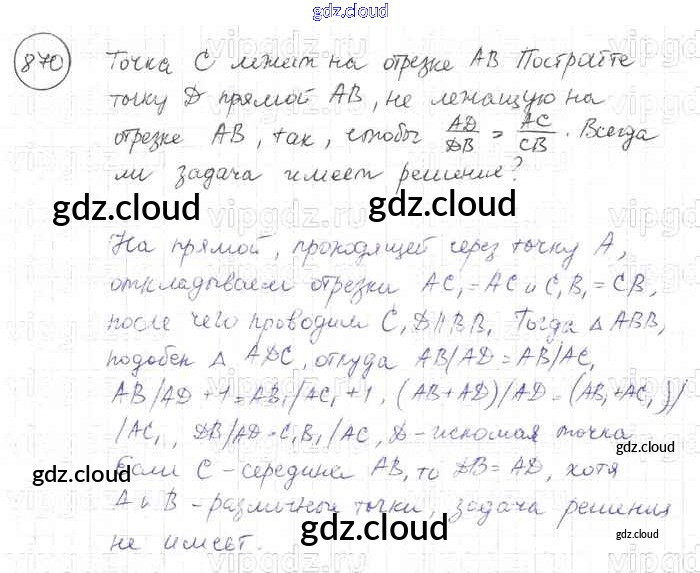 gdz.cloud
870 Точка C лежит на отрезке AB Постройте
точку D прямой AB, не лежащую на
отрезке AB, так, чтобы AD/DB = AC/CB. Всегда
ли задача имеет решение?
gdz.cloud gdz.cloud
На прямой, проходящей через точку A,
откладываем отрезки AC₁ = AC и C₁B₁ = CB,
после чего проводим C₁D∥BB₁ Тогда △ ABB₁
подобен △ ADC₁, откуда AB/AD = AB/AC₁
AB/AD + 1 = AB₁/AC₁ + 1, (AB+AD)/AD = (AB₁+AC₁)/
gdz.cloud
/AC₁, DB/AD = C₁B₁/AC, D - искомая точка
Если C - середина AB, то DB = AD, хотя
gdz.cloud
A и B - различные точки, задача решения
не имеет.
gdz.cloud
gdz.cloud